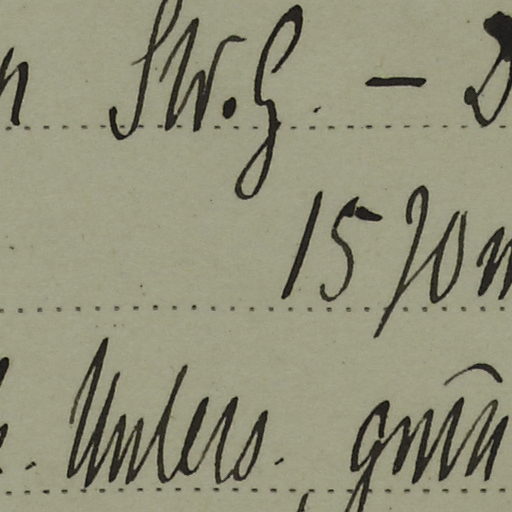 n SW.G. – D
1570 m
. Unters. grün